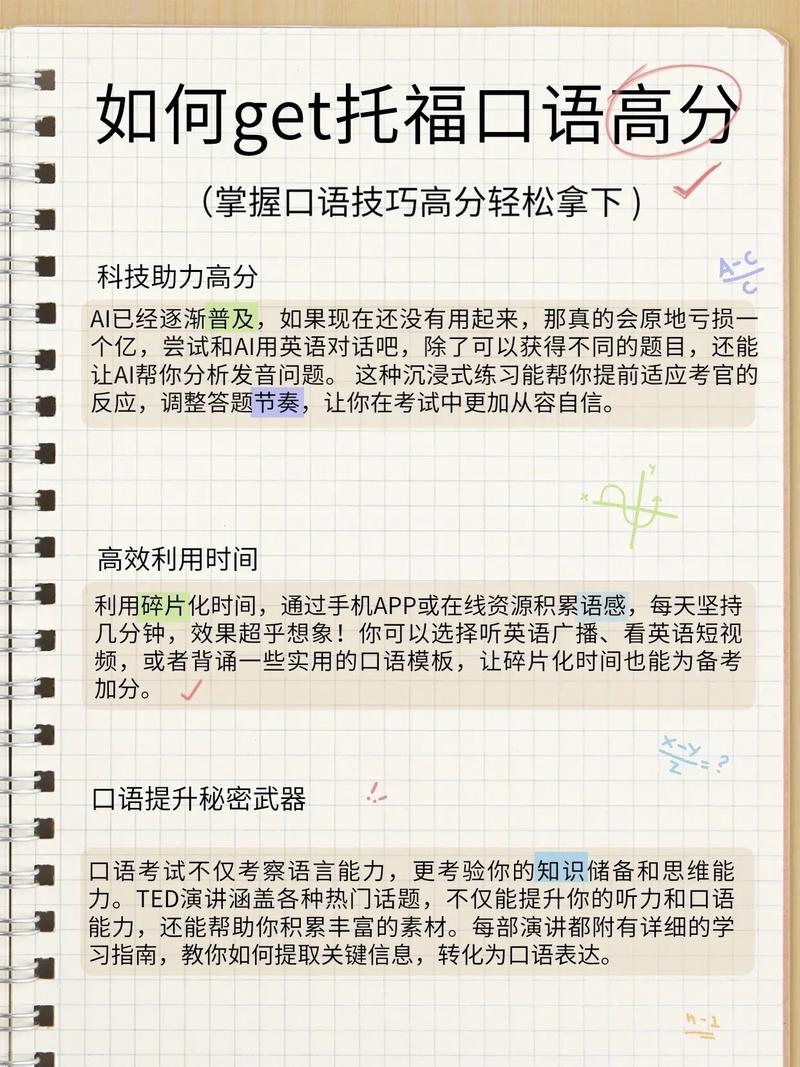 如何get托福口语高分
（掌握口语技巧高分轻松拿下）
A-C
C
科技助力高分
AI已经逐渐普及，如果现在还没有用起来，那真的会原地亏损一
个亿，尝试和AI用英语对话吧，除了可以获得不同的题目，还能
让AI帮你分析发音问题。 这种沉浸式练习能帮你提前适应考官的
反应，调整答题节奏，让你在考试中更加从容自信。
y
x
高效利用时间
利用碎片化时间，通过手机APP或在线资源积累语感，每天坚持
几分钟，效果超乎想象！你可以选择听英语广播、看英语短视
频，或者背诵一些实用的口语模板，让碎片化时间也能为备考
加分。
x-y
z =?
口语提升秘密武器
口语考试不仅考察语言能力，更考验你的知识储备和思维能
力。TED演讲涵盖各种热门话题，不仅能提升你的听力和口语
能力，还能帮助你积累丰富的素材。每部演讲都附有详细的学
习指南，教你如何提取关键信息，转化为口语表达。
n-1